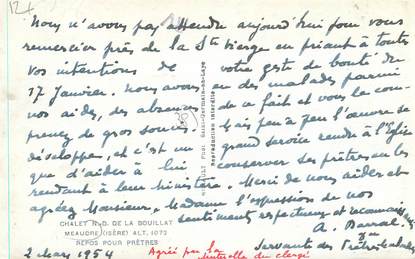 124
Nous n'avons pas attendu aujourd'hui pour vous
remercier près de la Ste Vierge en priant à toutes
vos intentions de votre geste de bonté du
17 Janvier. Nous avons eu des malades parmi
nos aides, des absences de ce fait et vous le com-
prenez de gros soucis. Mais peu à peu l'œuvre se
développe, et c'est un grand service rendre à l'Eglise
que d'aider à lui conserver ses prêtres en les
rendant à leur ministère. Merci de nous aider et
agréez Monsieur, Madame l'expression de nos
sentiments respectueux et reconnaissants
CHALET N.-D. DE LA DOUILLAT
MEAUDRE (ISÈRE) ALT. 1072
REPOS POUR PRÊTRES
A.
Servante des Prêtres malades
2 Mars 1954
Agréé par la
mutuelle du clergé
Saint-Germain-en-Laye
Reproduction interdite